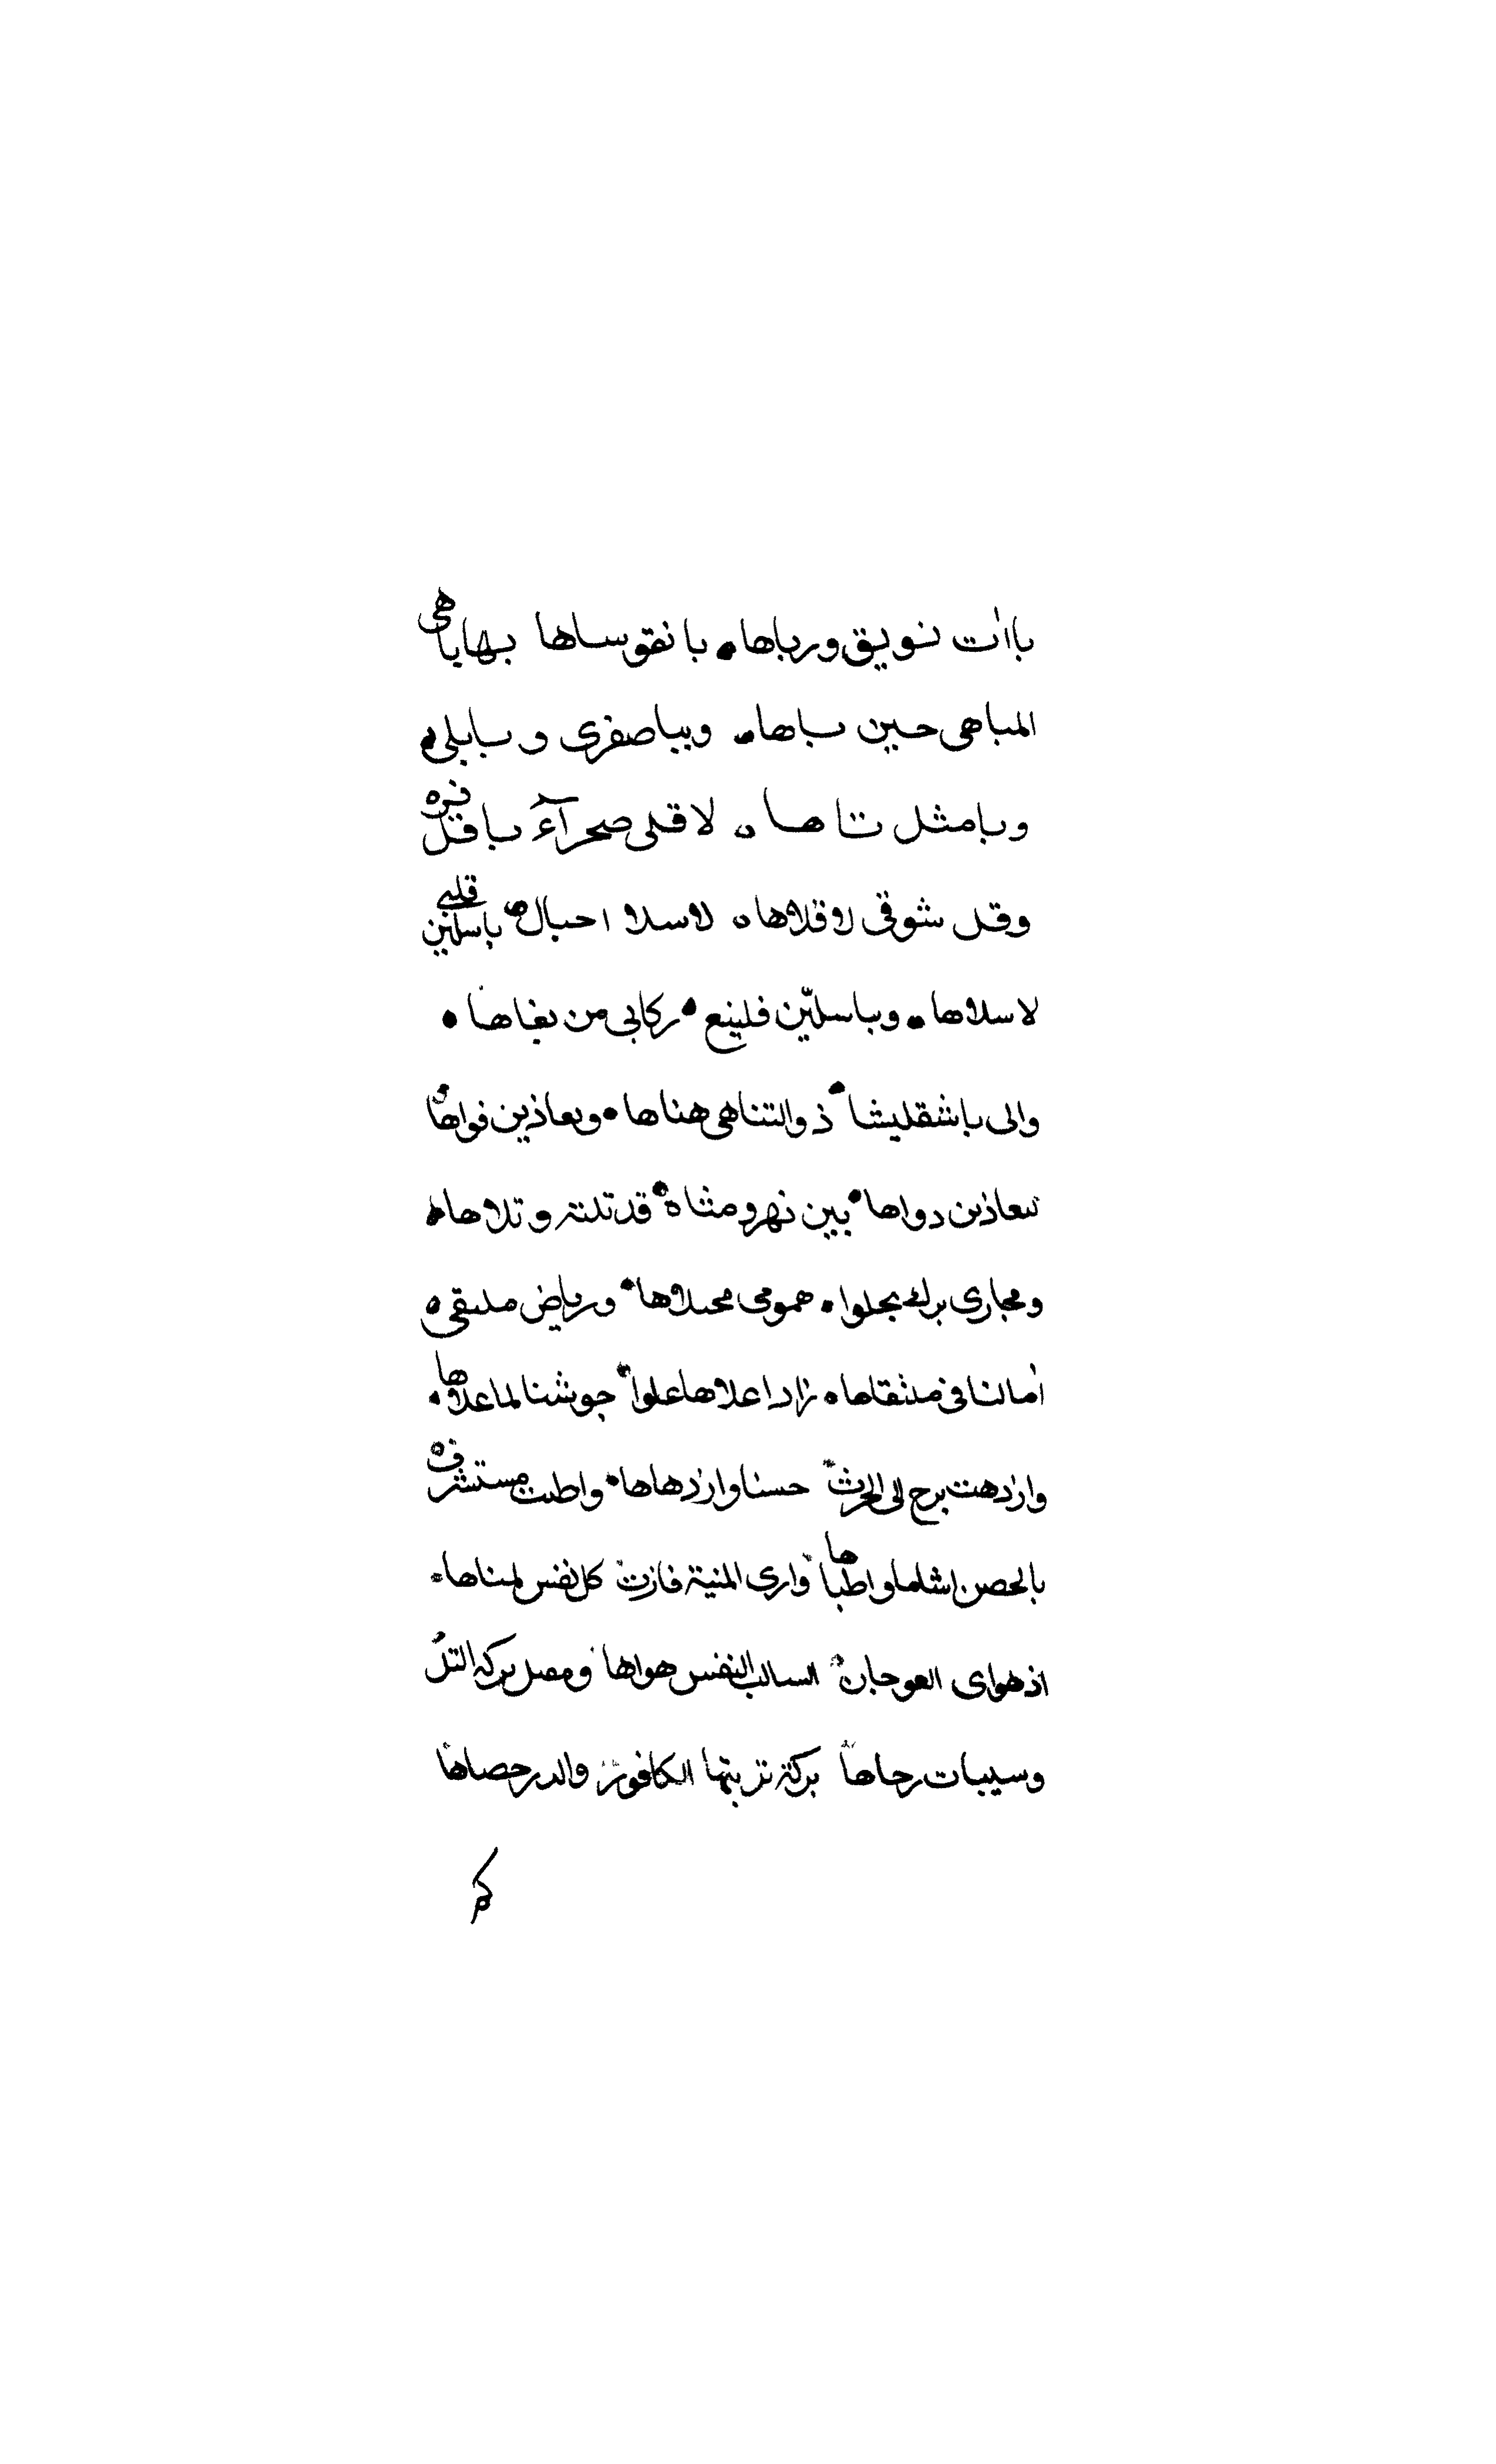 بااٰت نويق ورباها ٥ بانقوساها بها باهى
المباهى حين باها ٥ وبباصفرى وببابلى ٥
وبامثل تاها ٥ لاقلى صحرآء باقلى نره
وقل شوقى لاقلاها ٥ لاسلا احبال باسلين قلبى
لاسلاها ٥ وبباسلّين فلينع ٥ ركابى من بغاها ٥
والى باشقليشا ٥ ذوالتناهى هناها ٥ وبعاذين فواها
لبعاذين دواها ٥ بين نهر ومناة ٥ قد تلته وتلاها ٥
ومجارى برك يجلوا ٥ همومى مجتلاها ٥ ورياض ملتقى ٥
اٰمالنا فى ملتقاها ٥ زاد اعلاها علوا ٥ جوشنا لما علاها ٥
وازدهت برج الى الحرث ٥ حسنا وازدهاها ٥ واطبت مستشرف ٥
بالحصن اشلما واطباها وارى المنية فازت كل نفس لمناها ٥
اذ هواى العوجان ٥ السالب النفس هواها ومقيل بركة التل
وسيبات رحاها بركة تربتها الكافور والدر حصاها
كم